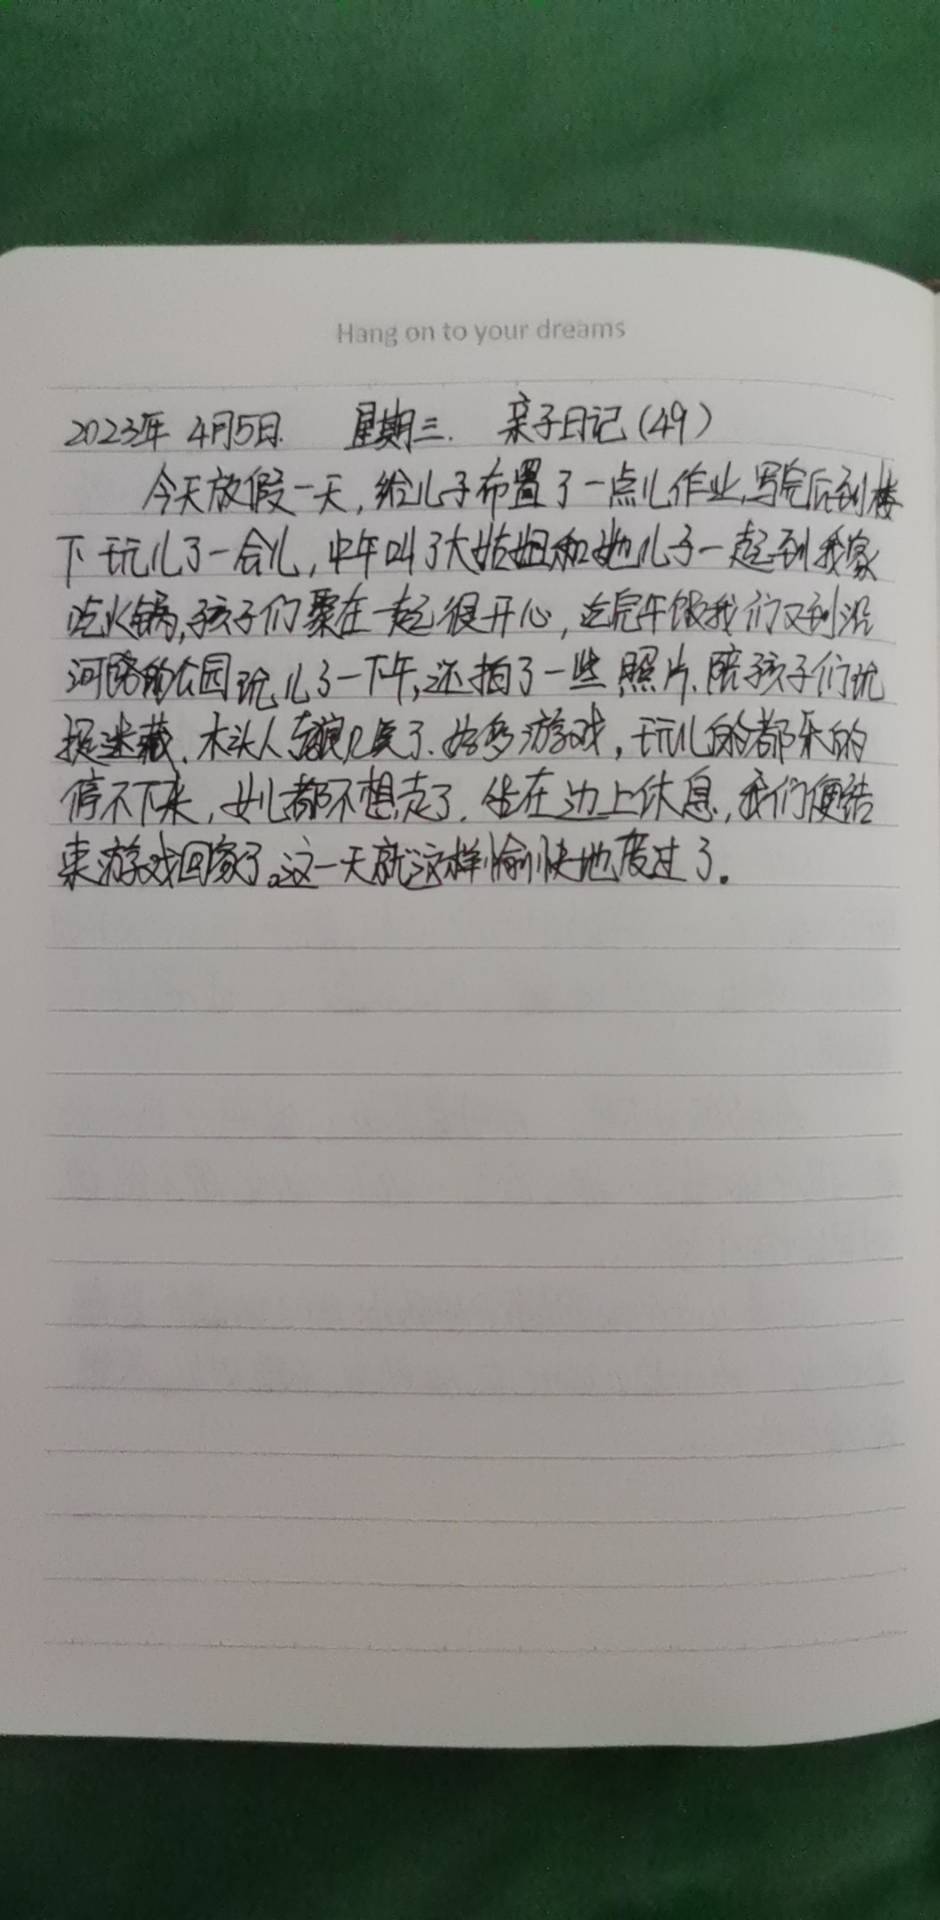 Hang on to your dreams
2023年 4月5日. 星期三. 亲子日记(49)
今天放假一天,给儿子布置了一点儿作业,写完后到楼
下玩儿了一会儿,中午叫了大姑姐和她儿子一起到我家
吃火锅,孩子们聚在一起很开心,吃完午饭我们又到沿
河路的公园玩儿了一下午,还拍了一些照片.陪孩子们玩
捉迷藏.木头人 了.好多游戏,玩儿的都乐的
停不下来,女儿都不想走了.坐在边上休息,我们便结
束游戏回家了。这一天就这样愉快地度过了.